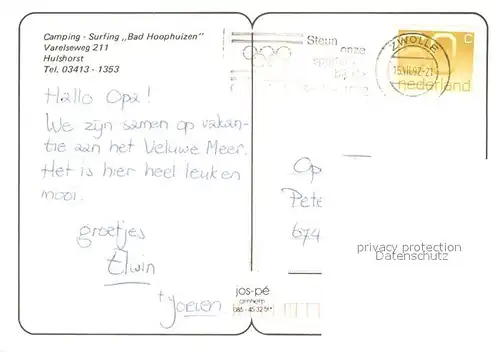 Camping - Surfing „Bad Hoophuizen"
Varelseweg 211
Hulshorst
Tel. 03413 - 1353
Steun
onze
ZWOLLE
C
nederland
Hallo Opa!
We zijn samen op vakan-
tie aan het Veluwe Meer.
Het is hier heel leuk en
mooi.
groetjes
Elwin
+ Joeren
Op
Pete
674
privacy protection
Datenschutz
jos-pé
arnhem